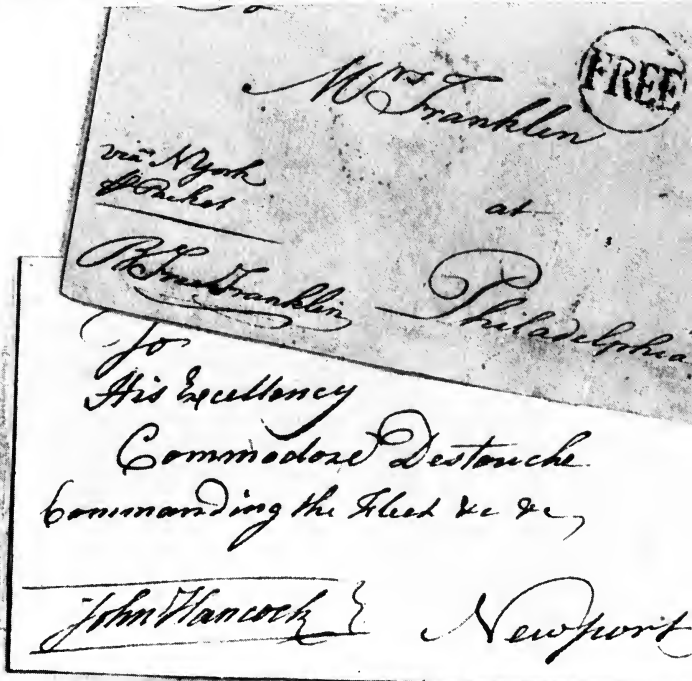 To
FREE
Mrs Franklin
via N York
Packet
at
B Free Franklin
Philadelphia
To
His Excellency
Commodore Destouche
Commanding the Fleet &c &c,
John Hancock
Newport